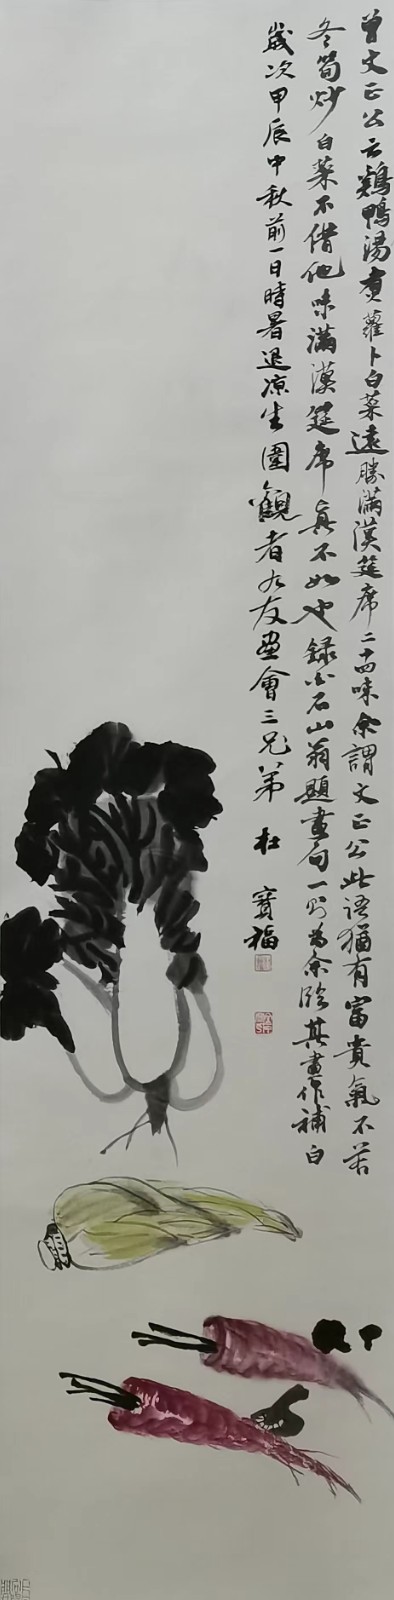 曾文正公云鷄鴨湯煮蘿卜白菜遠勝滿漢筵席二十四味余謂文正公此語猶有富貴氣不若
冬筍炒白菜不借他味滿漢筵席真不如也録白石山翁題畫句一則為余臨其畫作補白
歲次甲辰中秋前一日時暑退凉生圍觀者九友畫會三兄弟
杜寶福